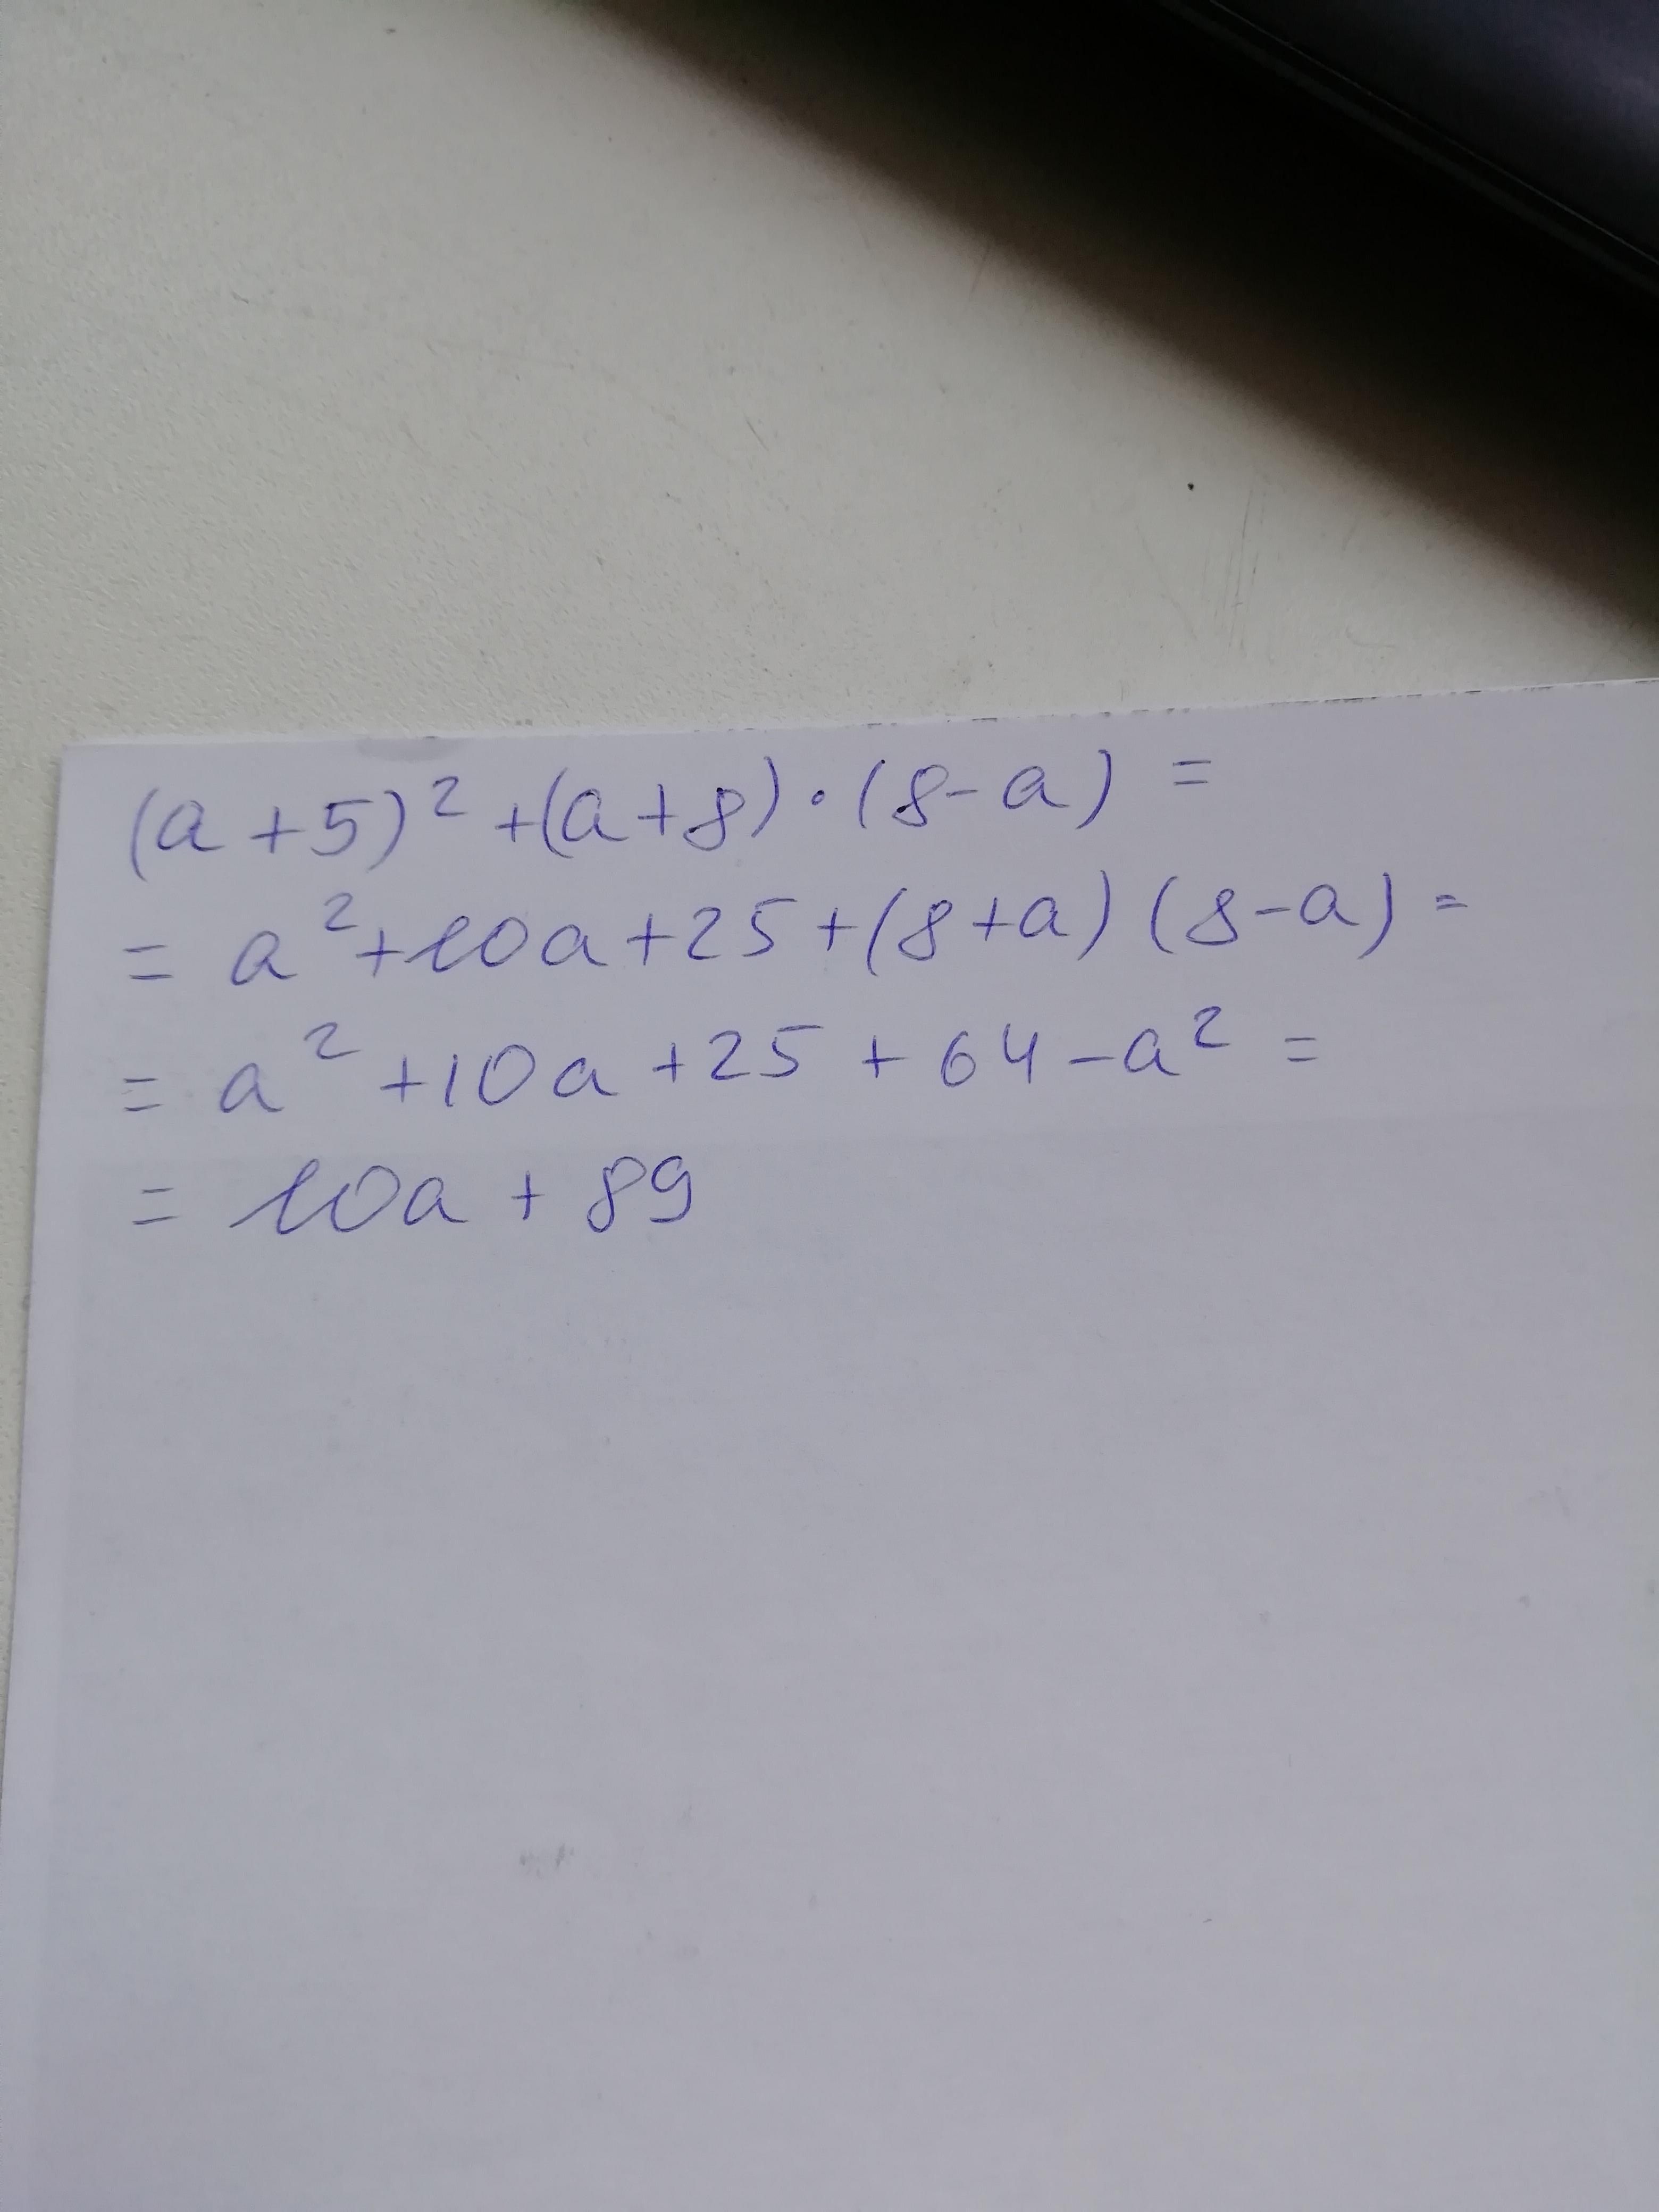 (a+5)² +(a+8)·(8-a) =
= a²+10a+25+(8+a)(8-a)=
= a²+10a+25+64-a² =
= 10a + 89